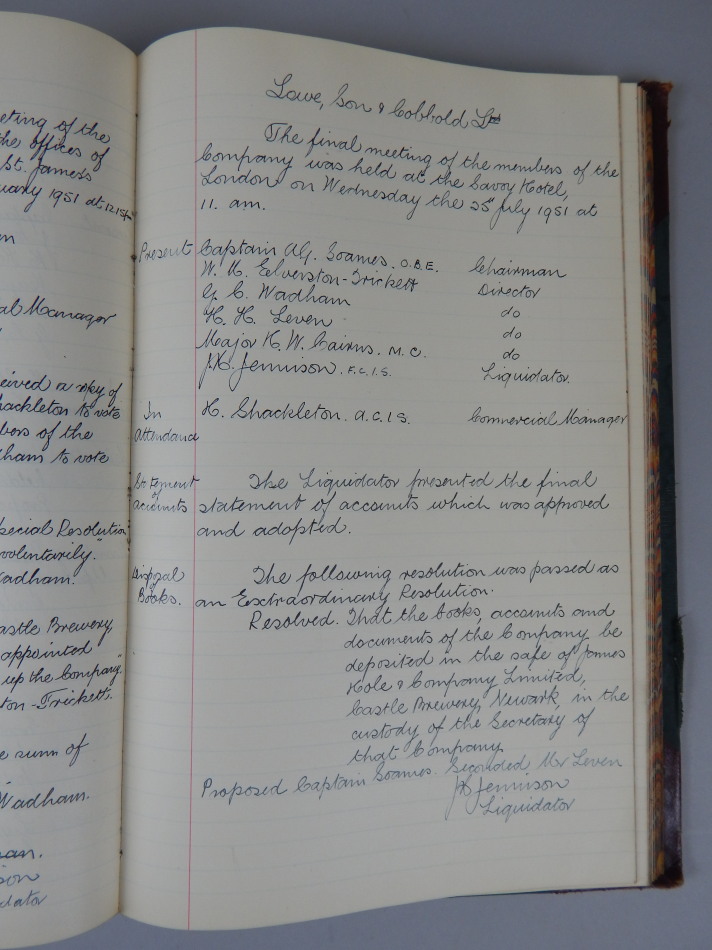 eting of the
the offices of
St. James's
uary 1951 at 12.15
m
al Manager
eived a copy of
hackleton to vote
bers of the
ham to vote
pecial Resolution
voluntarily."
adham.
astle Brewery,
appointed
up the Company."
ton-Trickett.
e sum of
Wadham.
man.
son
dator
Lowe, Son & Cobbold Ltd
The final meeting of the members of the
Company was held at the Savoy Hotel,
London on Wednesday the 25th July 1951 at
11. am.
Present Captain A.G. Soames. O.B.E. Chairman
W. H. Elverston-Trickett Director
G. C. Wadham do
H. H. Leven do
Major H. W. Cairns. M.C. do
J.H. Jennison. F.C.I.S. Liquidator.
In H. Shackleton. A.C.I.S. Commercial Manager
Attendance
Statement The Liquidator presented the final
of
accounts statement of accounts which was approved
and adopted.
Disposal The following resolution was passed as
of
Books. an Exstraordinary Resolution.
Resolved. That the books, accounts and
documents of the Company be
deposited in the safe of James
Hole & Company Limited,
Castle Brewery, Newark, in the
custody of the Secretary of
that Company.
Proposed Captain Soames. Seconded Mr Leven
JH Jennison
Liquidator